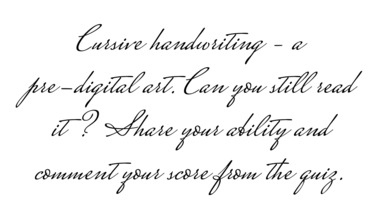 Cursive handwriting - a
pre-digital art. Can you still read
it ? Share your ability and
comment your score from the quiz.